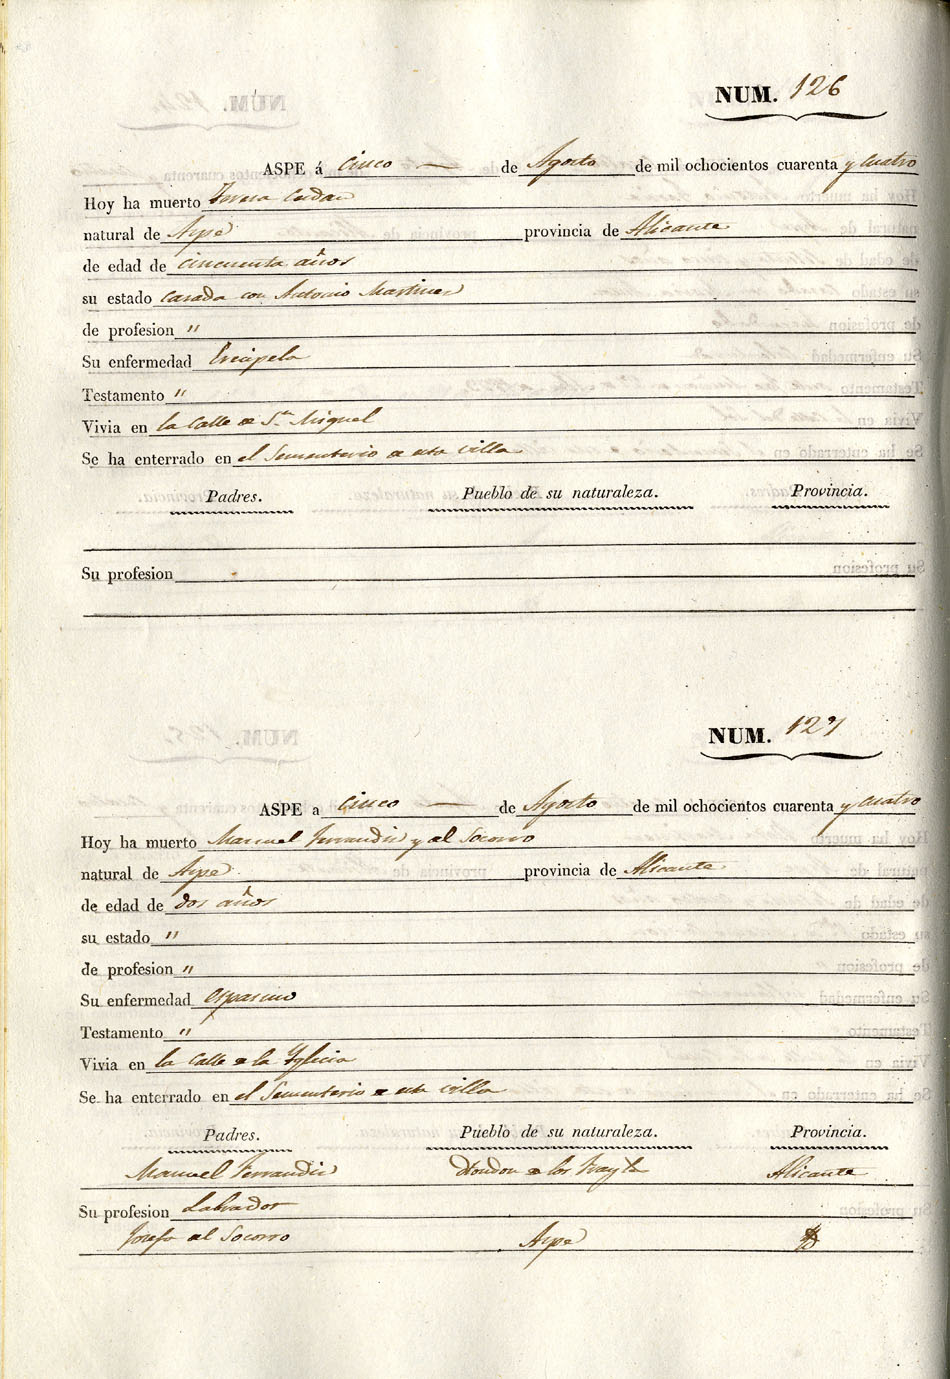 NUM. 126
ASPE á cinco de Agosto de mil ochocientos cuarenta y cuatro
Hoy ha muerto Teresa Cerdan
natural de Aspe provincia de Alicante
de edad de cincuenta años
su estado casada con Antonio Martinez
de profesion "
Su enfermedad Ericipela
Testamento "
Vivia en la calle de Sn. Miguel
Se ha enterrado en el Sementerio de esta villa
Padres. Pueblo de su naturaleza. Provincia.
Su profesion
NUM. 127
ASPE a cinco de Agosto de mil ochocientos cuarenta y cuatro
Hoy ha muerto Manuel Ferrandiz y del Socorro
natural de Aspe provincia de Alicante
de edad de dos años
su estado "
de profesion "
Su enfermedad espasmo
Testamento "
Vivia en la calle de la Yglecia
Se ha enterrado en el Sementerio de esta villa
Padres. Pueblo de su naturaleza. Provincia.
Manuel Ferrandiz Hondon de los Frayls Alicante
Su profesion Labrador
Josefa del Socorro Aspe